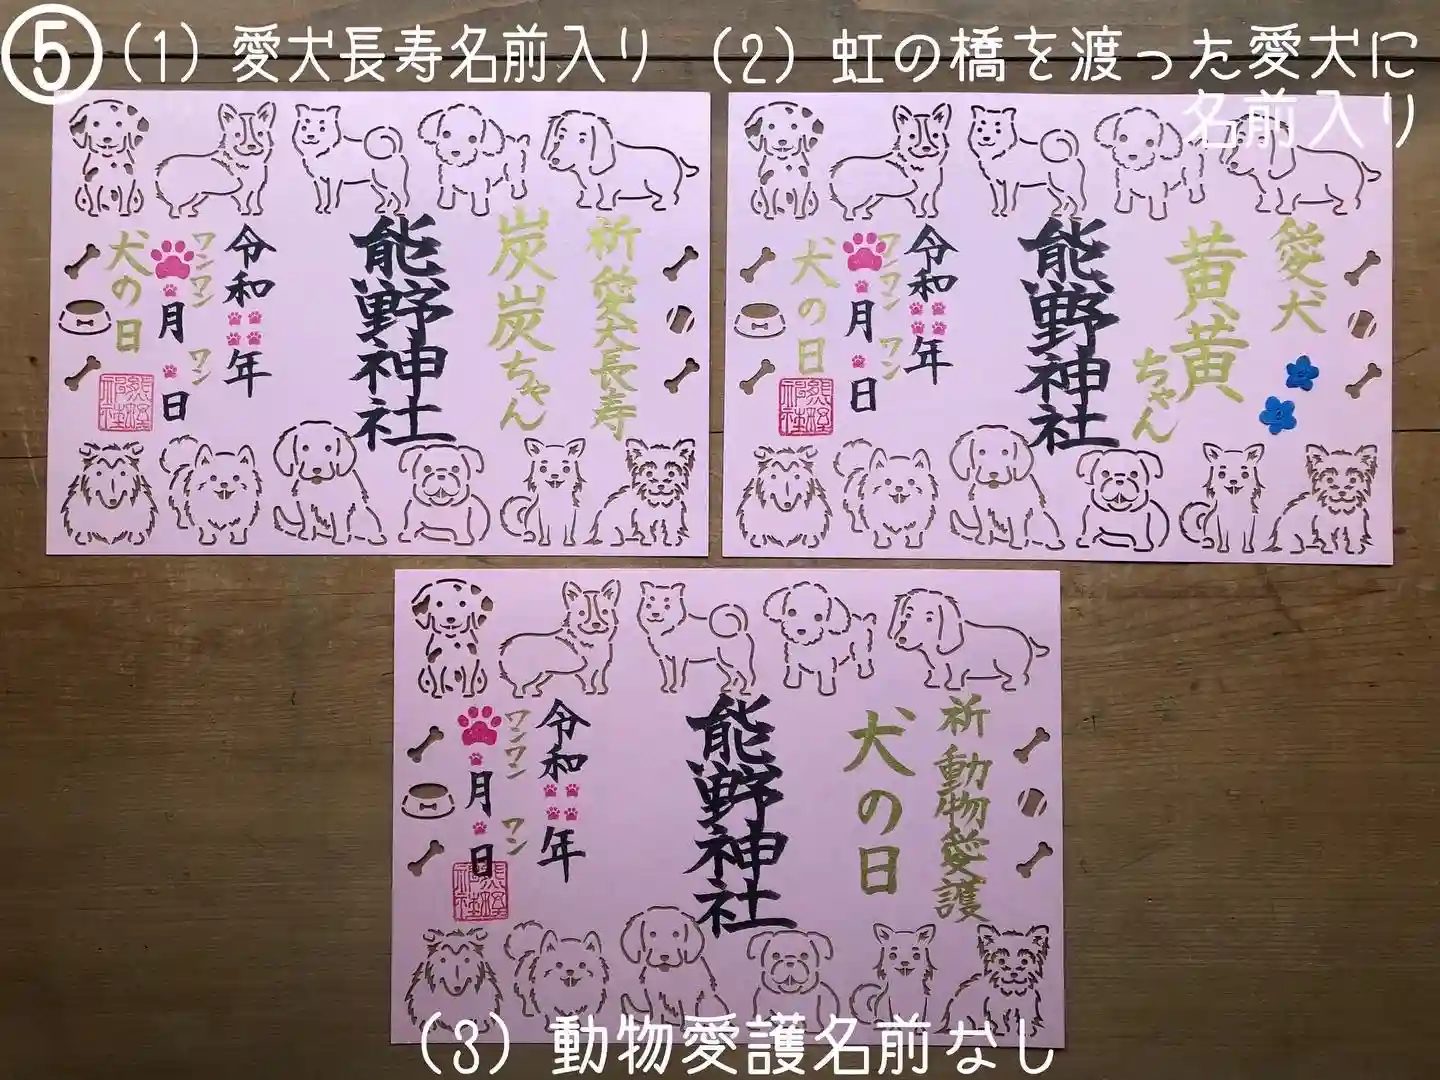 ⑤(1)愛犬長寿名前入り (2)虹の橋を渡った愛犬に
名前入り
祈 愛犬長寿
炭炭ちゃん
熊野神社
令和年
ワンワン ワン
月日
犬の日
愛犬
黄黄ちゃん
熊野神社
令和年
ワンワン ワン
月日
犬の日
祈 動物愛護
犬の日
熊野神社
令和年
ワンワン ワン
月日
(3)動物愛護名前なし